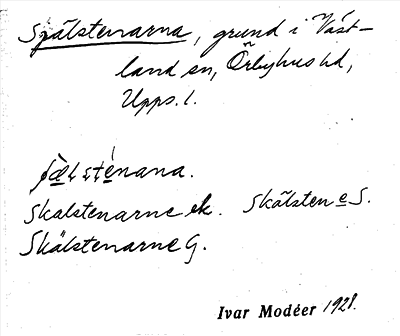 Spälstenarna, grund i Väst-
land sn, Örbyhus hd,
Upps. l.
stenana.
Skalstenarne ek. Skälsten e S.
Skälstenarne G.
Ivar Modéer 1928.